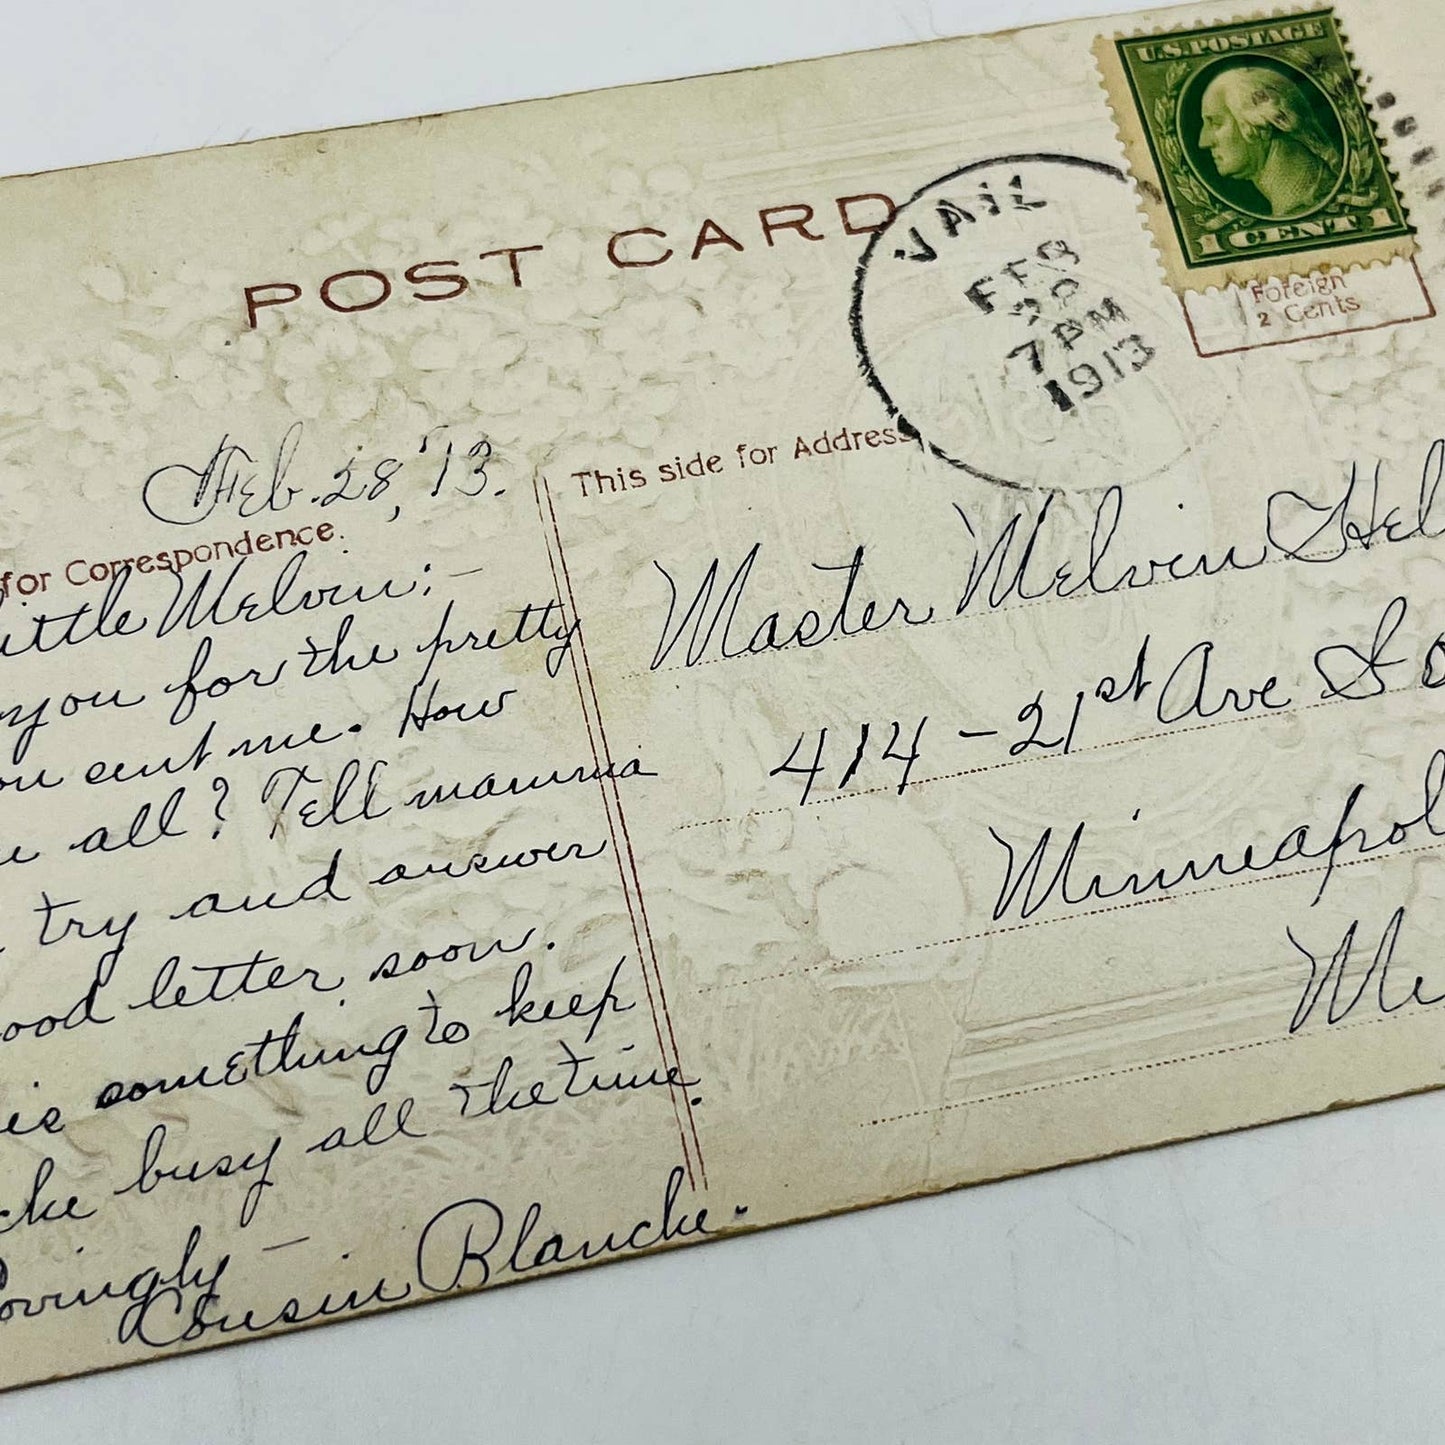 U.S. POSTAGE
1 CENT 1
POST CARD
VAIL
FEB
28
7 PM
1913
Foreign
2 Cents
Feb. 28, '13.
for Correspondence.
This side for Address
ittle Melvin:-
you for the pretty
ou sent me. How
all? Tell mamma
try and answer
ood letter soon.
is something to keep
busy all the time.
ovingly -
Cousin Blanche.
Master Melvin Hel
414-21st Ave So
Minneapol
Mi